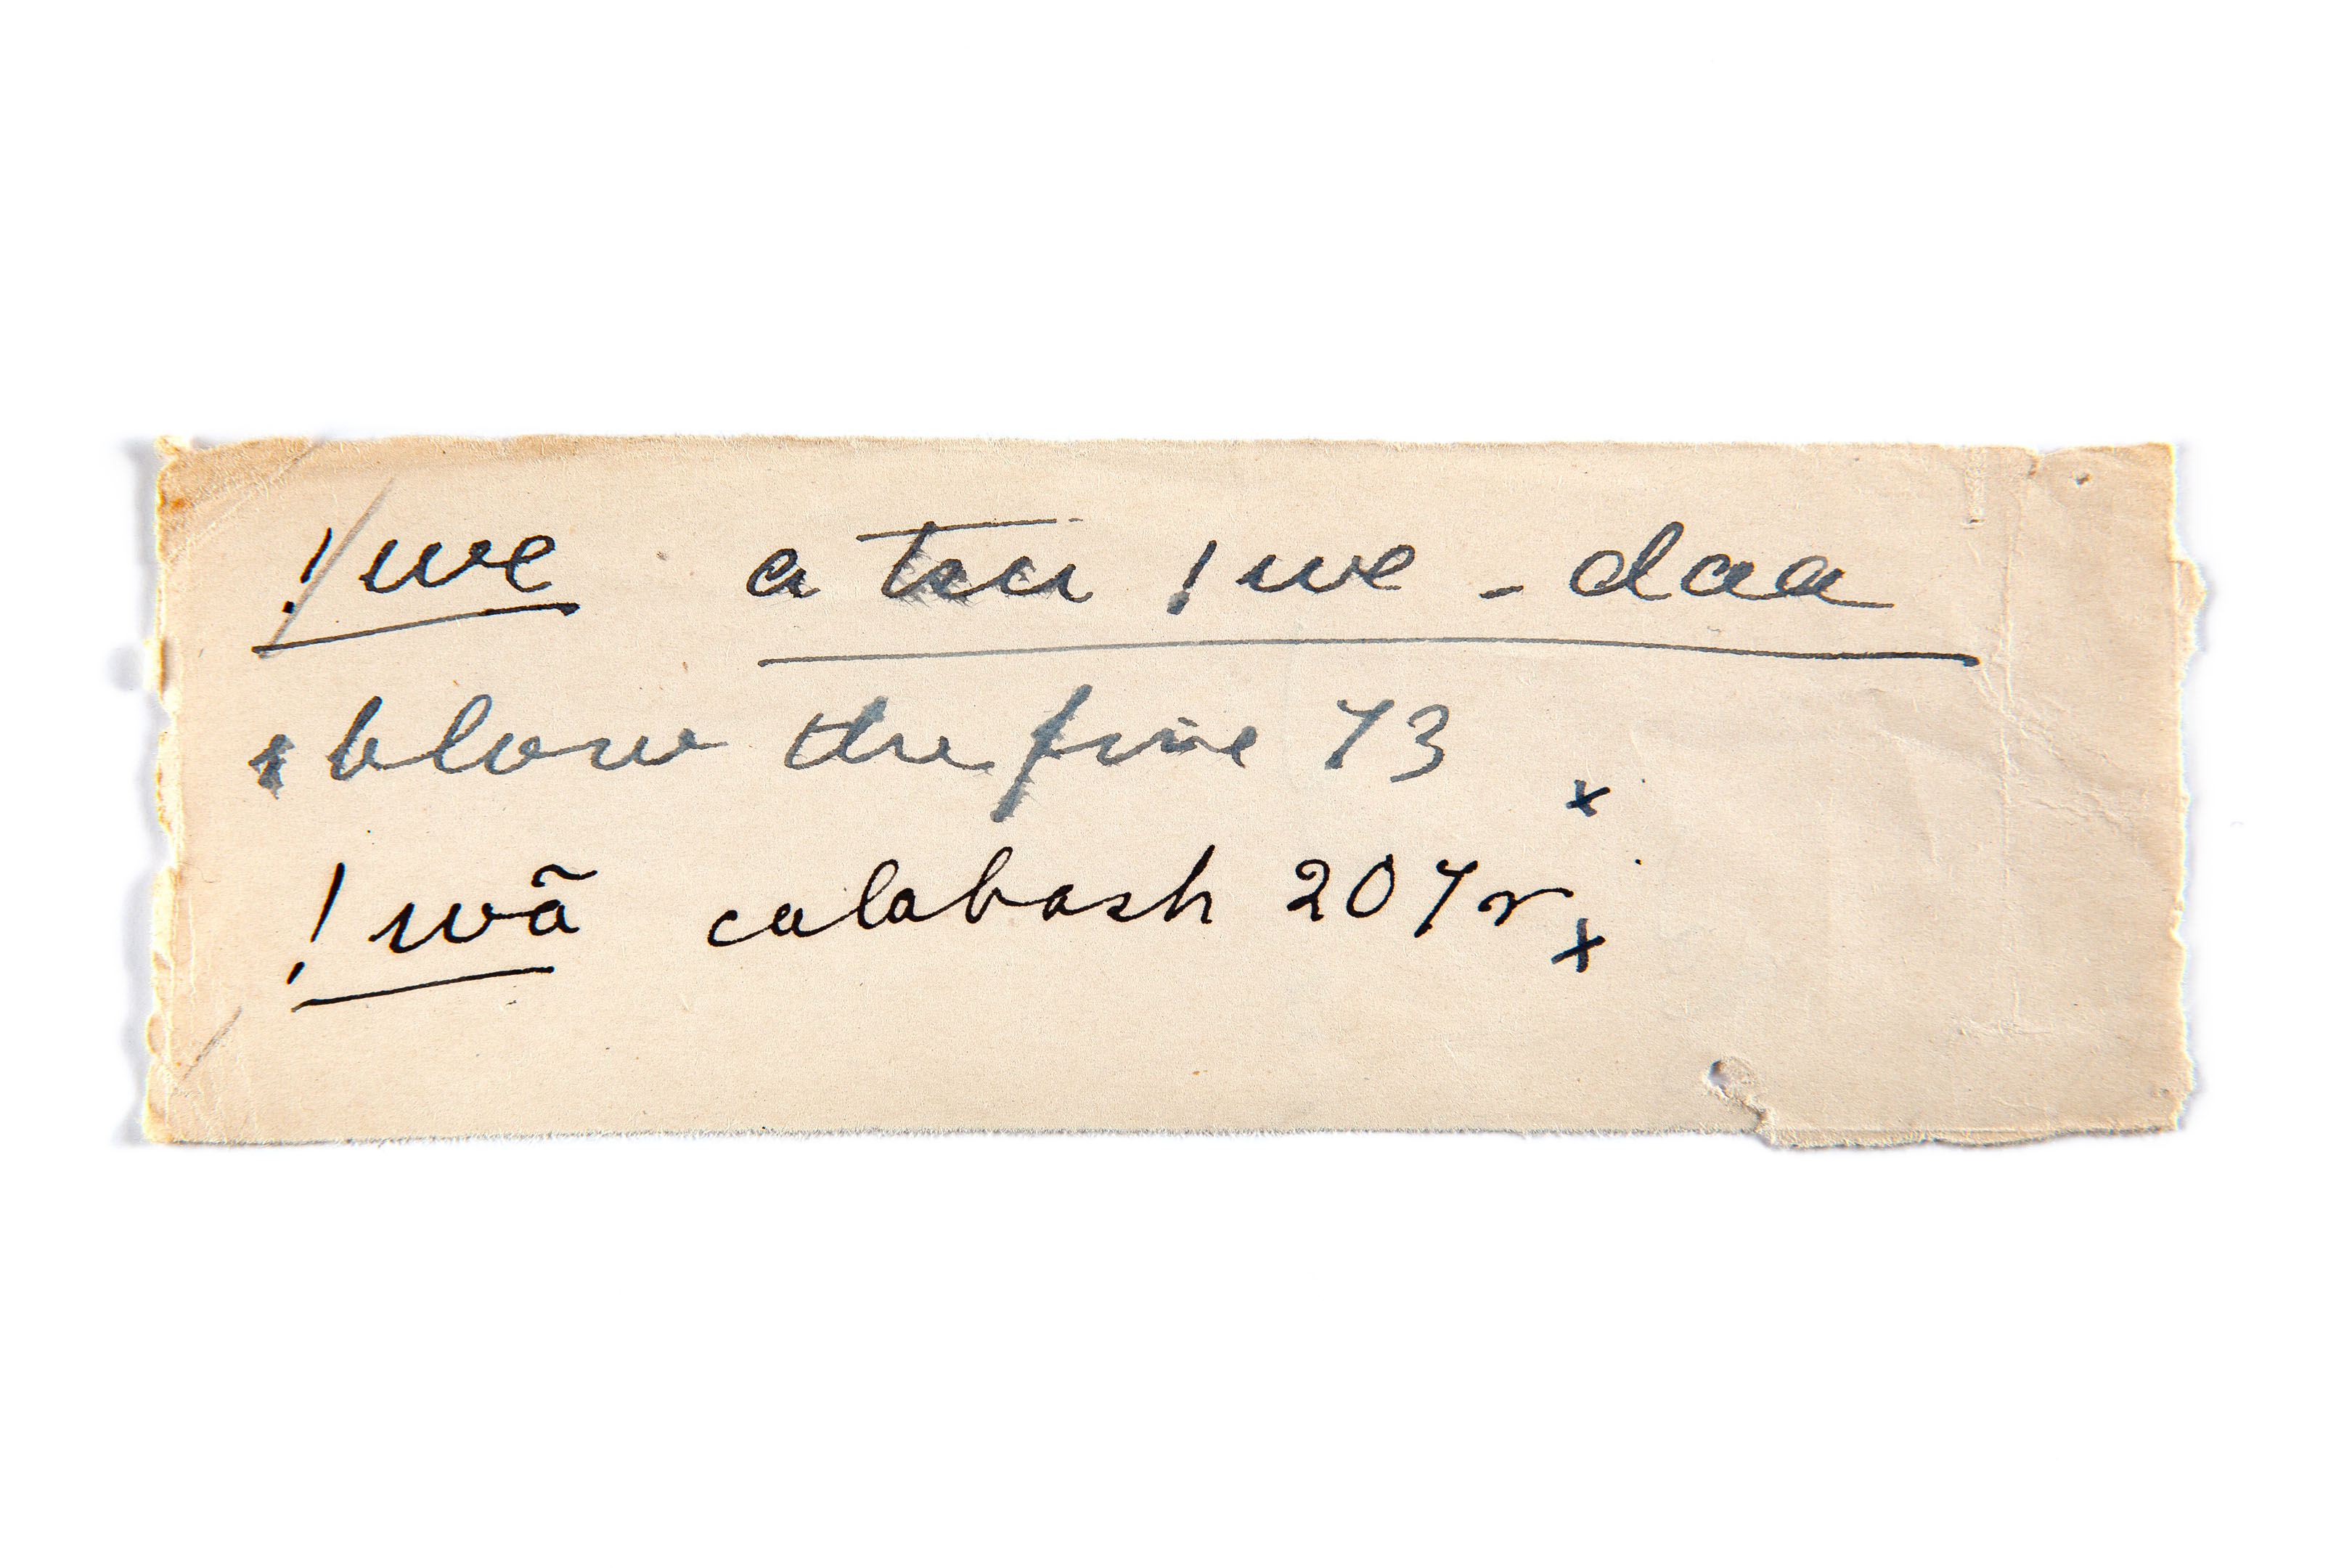 !we a teu !we - daa
blow the fire 73 x
!wã calabash 207r x